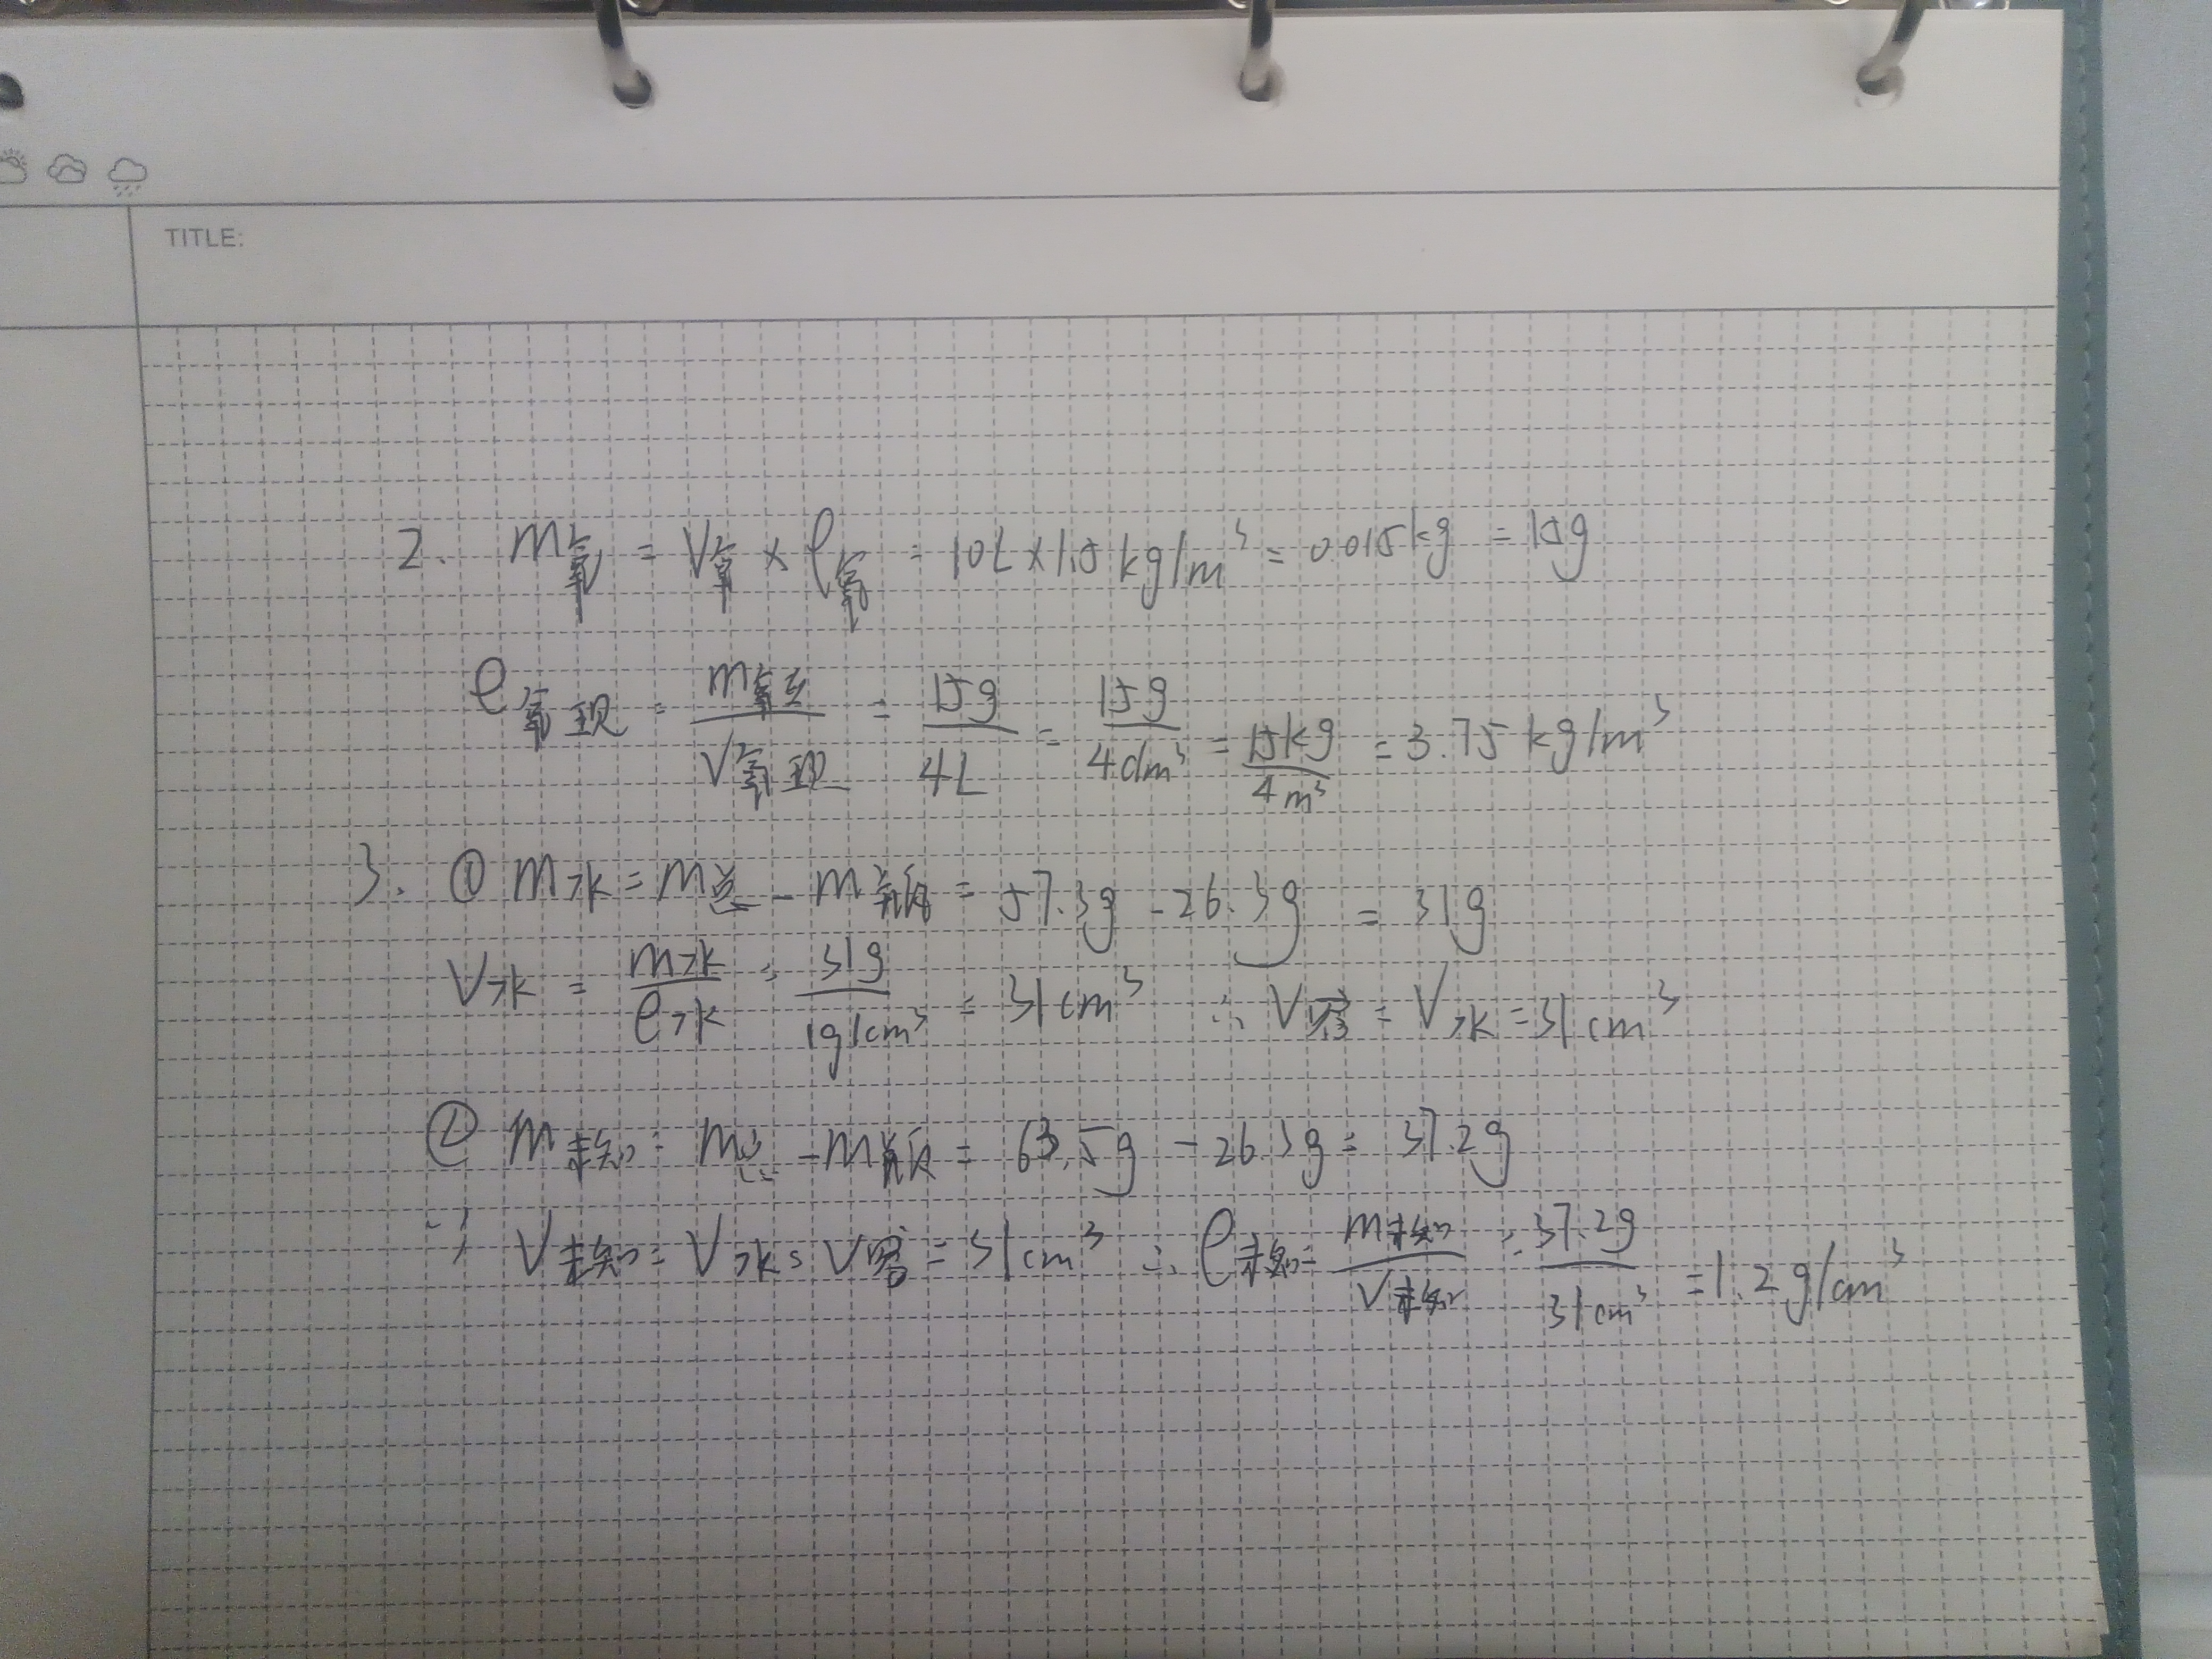 TITLE:
2. m氧 = V氧 × ρ氧 = 10L × 1.5 kg/m³ = 0.015kg = 15g
ρ氧现 = m氧现/V氧现 = 15g/4L = 15g/4dm³ = 15kg/4m³ = 3.75 kg/m³
3. ① m水 = m总 - m瓶 = 57.3g - 26.3g = 31g
V水 = m水/ρ水 = 31g/1g/cm³ = 31cm³ ∴ V容 = V水 = 31cm³
② m未知 = m总 - m瓶 = 63.5g - 26.3g = 37.2g
∵ V未知 = V水 = V容 = 31cm³ ∴ ρ未知 = m未知/V未知 = 37.2g/31cm³ = 1.2g/cm³